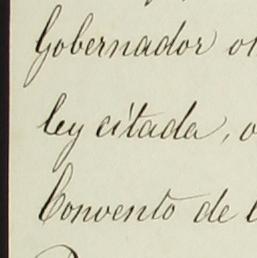 Gobernador
ley citada,
Convento de